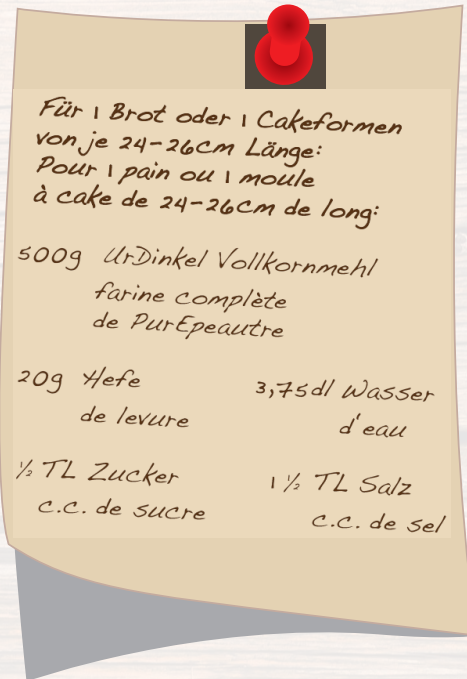 Für 1 Brot oder 1 Cakeformen
von je 24-26cm Länge:
Pour 1 pain ou 1 moule
à cake de 24-26cm de long:
500g UrDinkel Vollkornmehl
farine complète
de PurEpeautre
20g Hefe
de levure
3,75dl Wasser
d'eau
½ TL Zucker
c.c. de sucre
1 ½ TL Salz
c.c. de sel